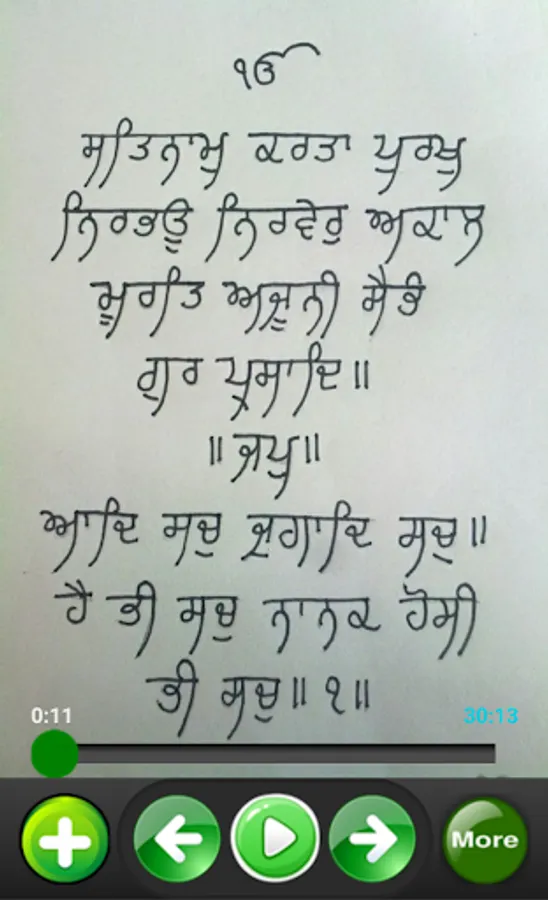 ੴ
ਸਤਿਨਾਮੁ ਕਰਤਾ ਪੁਰਖੁ
ਨਿਰਭਊ ਨਿਰਵੇਰੁ ਅਕਾਲ
ਮੂਰਤਿ ਅਜੂਨੀ ਸੈਭੰ
ਗੁਰ ਪ੍ਰਸਾਦਿ॥
॥ਜਪੁ॥
ਆਦਿ ਸਚੁ ਜੁਗਾਦਿ ਸਚੁ॥
ਹੈ ਭੀ ਸਚੁ ਨਾਨਕ ਹੋਸੀ
ਭੀ ਸਚੁ॥੧॥
0:11 30:13
More